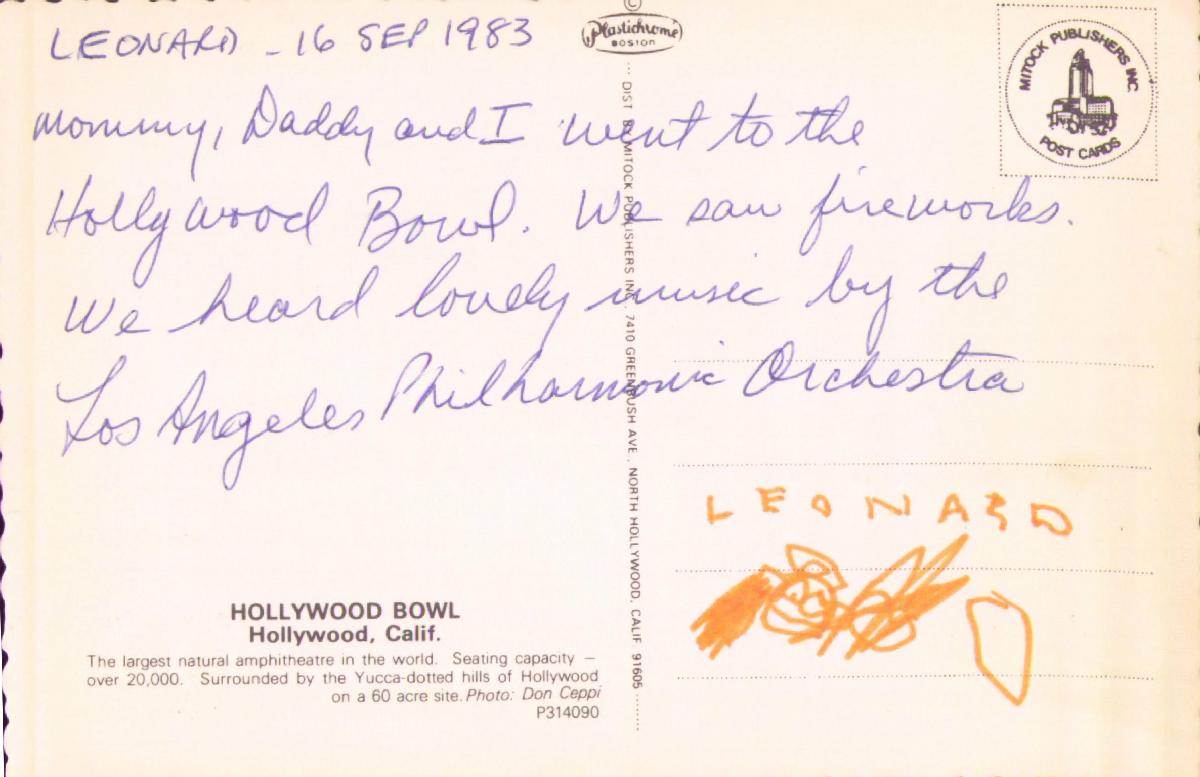 LEONARD - 16 SEP 1983
Mommy, Daddy and I went to the
Hollywood Bowl. We saw fireworks.
We heard lovely music by the
Los Angeles Philharmonic Orchestra
HOLLYWOOD BOWL
Hollywood, Calif.
The largest natural amphitheatre in the world. Seating capacity —
over 20,000. Surrounded by the Yucca-dotted hills of Hollywood
on a 60 acre site. Photo: Don Ceppi
P314090
©
Plastichrome
BOSTON
DIST BY MITOCK PUBLISHERS INC. 7410 GREENBUSH AVE., NORTH HOLLYWOOD, CALIF 91605
MITOCK PUBLISHERS INC.
POST CARDS
LEONARD